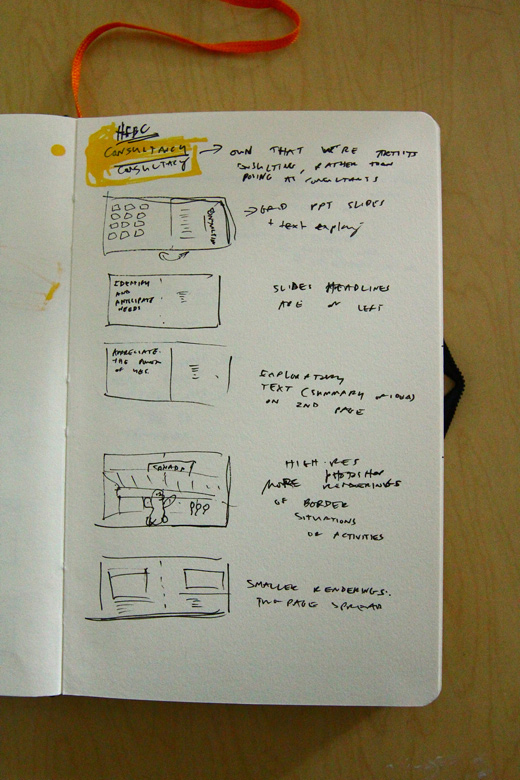 CONSULTANCY
CONSULTACY
OWN THAT WE'RE ARTISTS
CONSULTING, RATHER THAN
POSING AS CONSULTANTS
GRID PPT SLIDES
+ text
IDENTIFY
AND
ANTICIPATE
NEEDS
SLIDES HEADLINES
ARE ON LEFT
APPRECIATE
THE POWER
OF
EXPLORATORY
TEXT (SUMMARY OF IDEAS)
ON 2ND
PAGE
CANADA
HIGH-RES
MORE PHOTOSHOP
RENDERINGS
OF BORDER
SITUATIONS
OR ACTIVITIES
SMALLER RENDERINGS.
TWO PAGE SPREAD